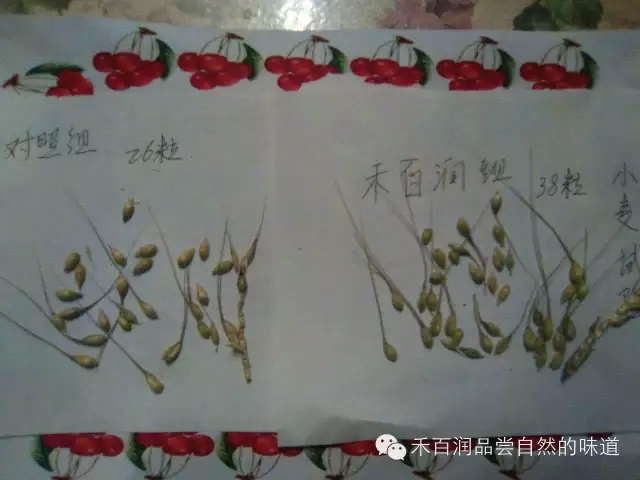 对照组 26粒
禾百润组 38粒
小麦试
禾百润品尝自然的味道